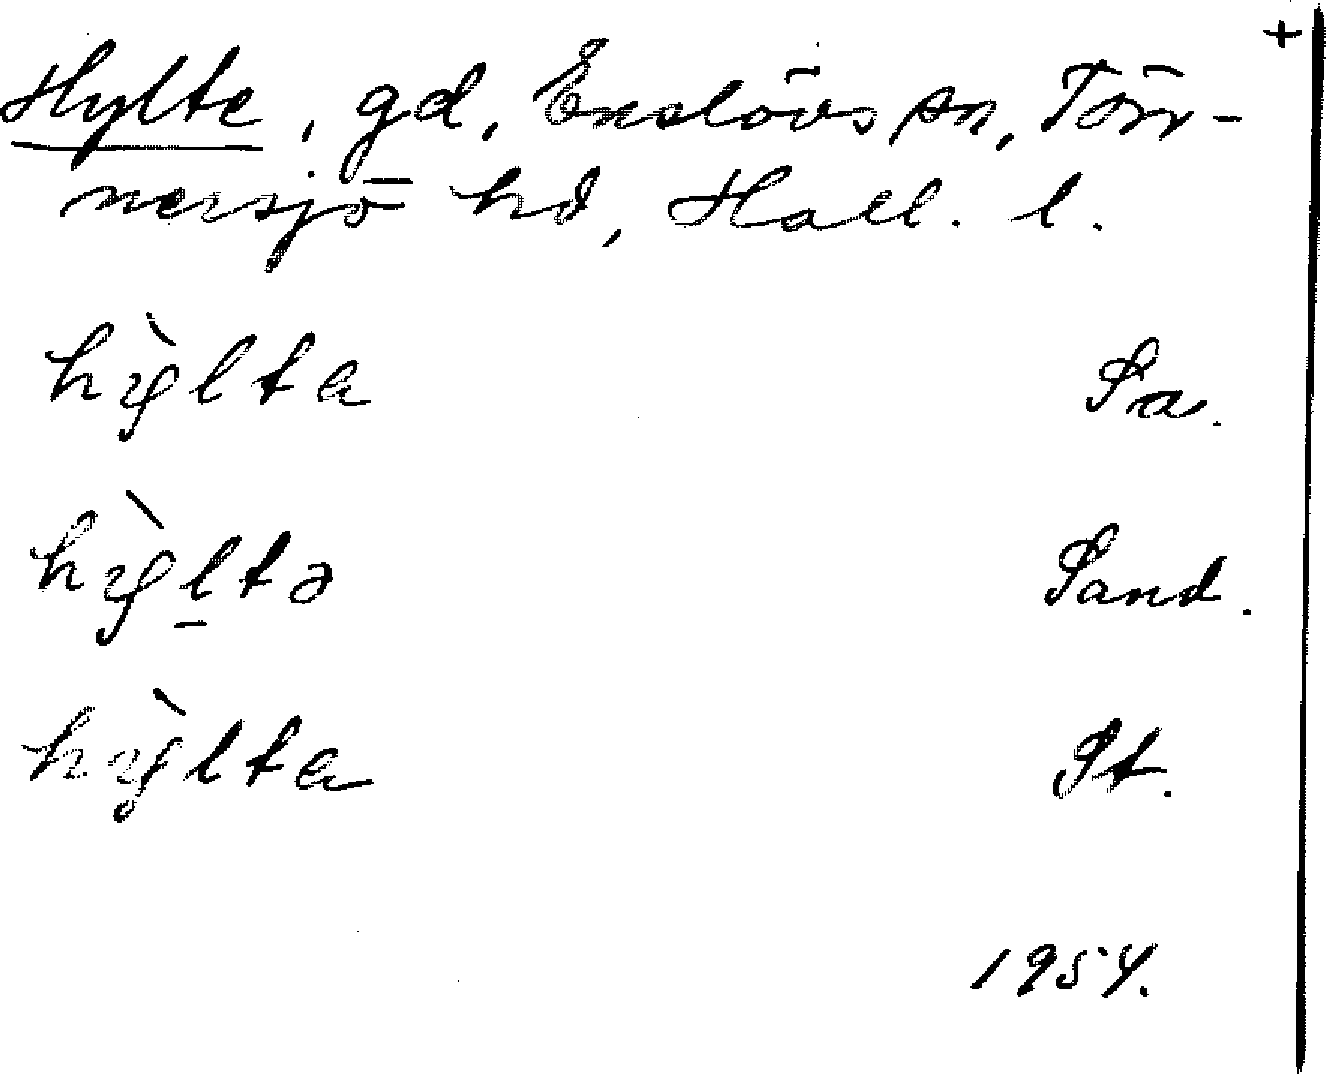 +
Hylte, gd, Enslövs sn, Törn-
nersjö hd, Hall. l.
hỳlta Sa.
hỳltə Sand.
hỳlta St.
1954.